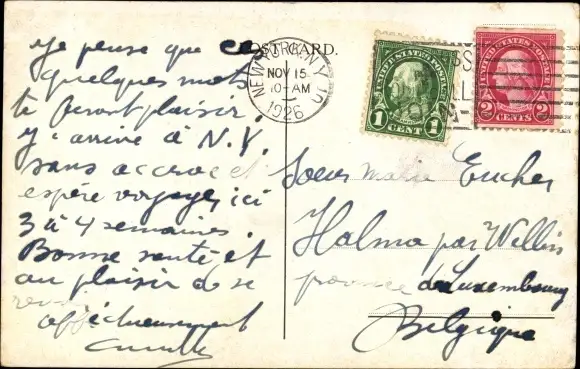 POST CARD.
NEW YORK, N.Y.
NOV 15
10-AM
1926
UNITED STATES POSTAGE
1 CENT 1
UNITED STATES POSTAGE
2 CENTS 2
Je pense que ces
quelques mots
te feront plaisir.
J'y arrive à N.Y.
sans accroc et
espère voyager ici
3 à 4 semaines.
Bonne santé et
au plaisir de se
revoir
affectueusement
Soeur Marie Eucher
Halma par Wellin
province de Luxembourg
Belgique